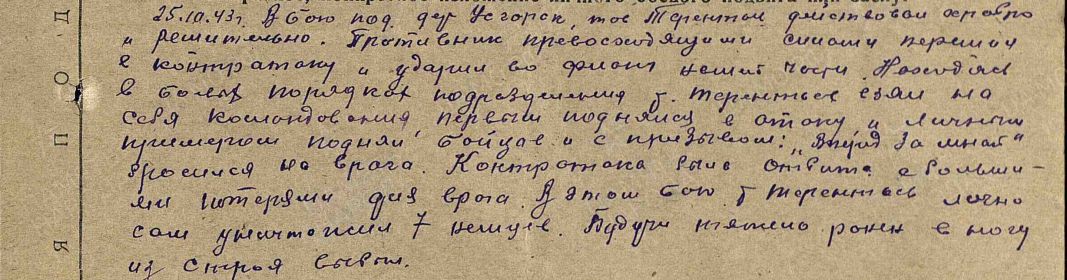 25.10.43г. В бою под дер. Усгорск, тов Терентьев действовал храбро
и решительно. Противник превосходящими силами перешел
в контратаку и ударил во фланг нашей части. Находясь
в боевых порядках подразделения т. Терентьев взял на
себя командования, первым поднялся в атаку и личным
примером поднял бойцов и с призывом: "Вперед за мной"
бросился на врага. Контратака была отбита с больши-
ми потерями для врага. В этом бою т Терентьев лично
сам уничтожил 7 немцев. Будучи тяжело ранен в ногу
из строя выбыл.
Д
О
П
Я